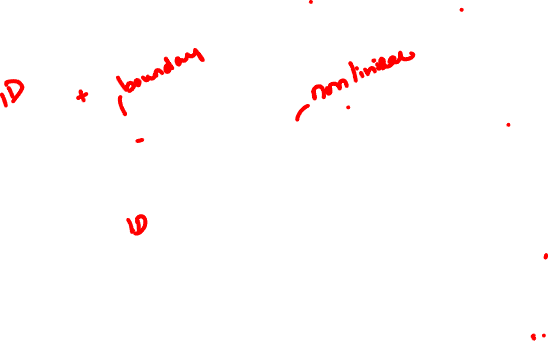 1D + boundary nonlinear
-
1D